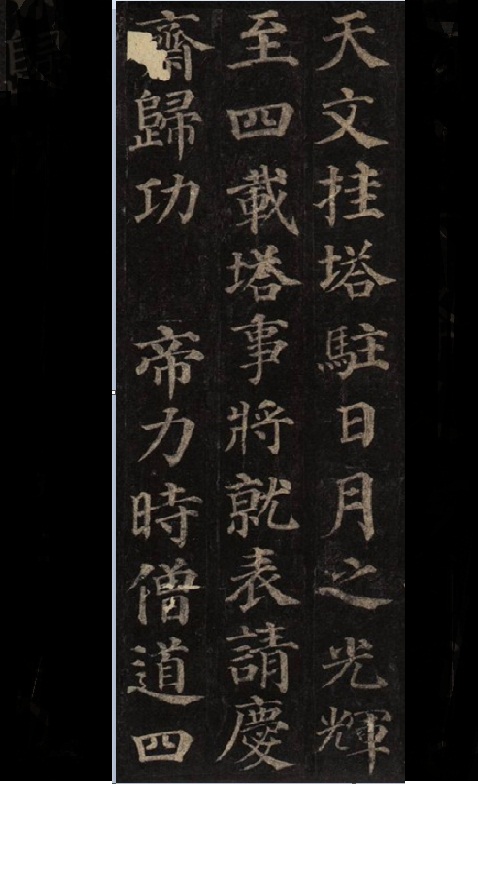 天文挂塔駐日月之光輝
至四載塔事將就表請慶
齋歸功 帝力時僧道四